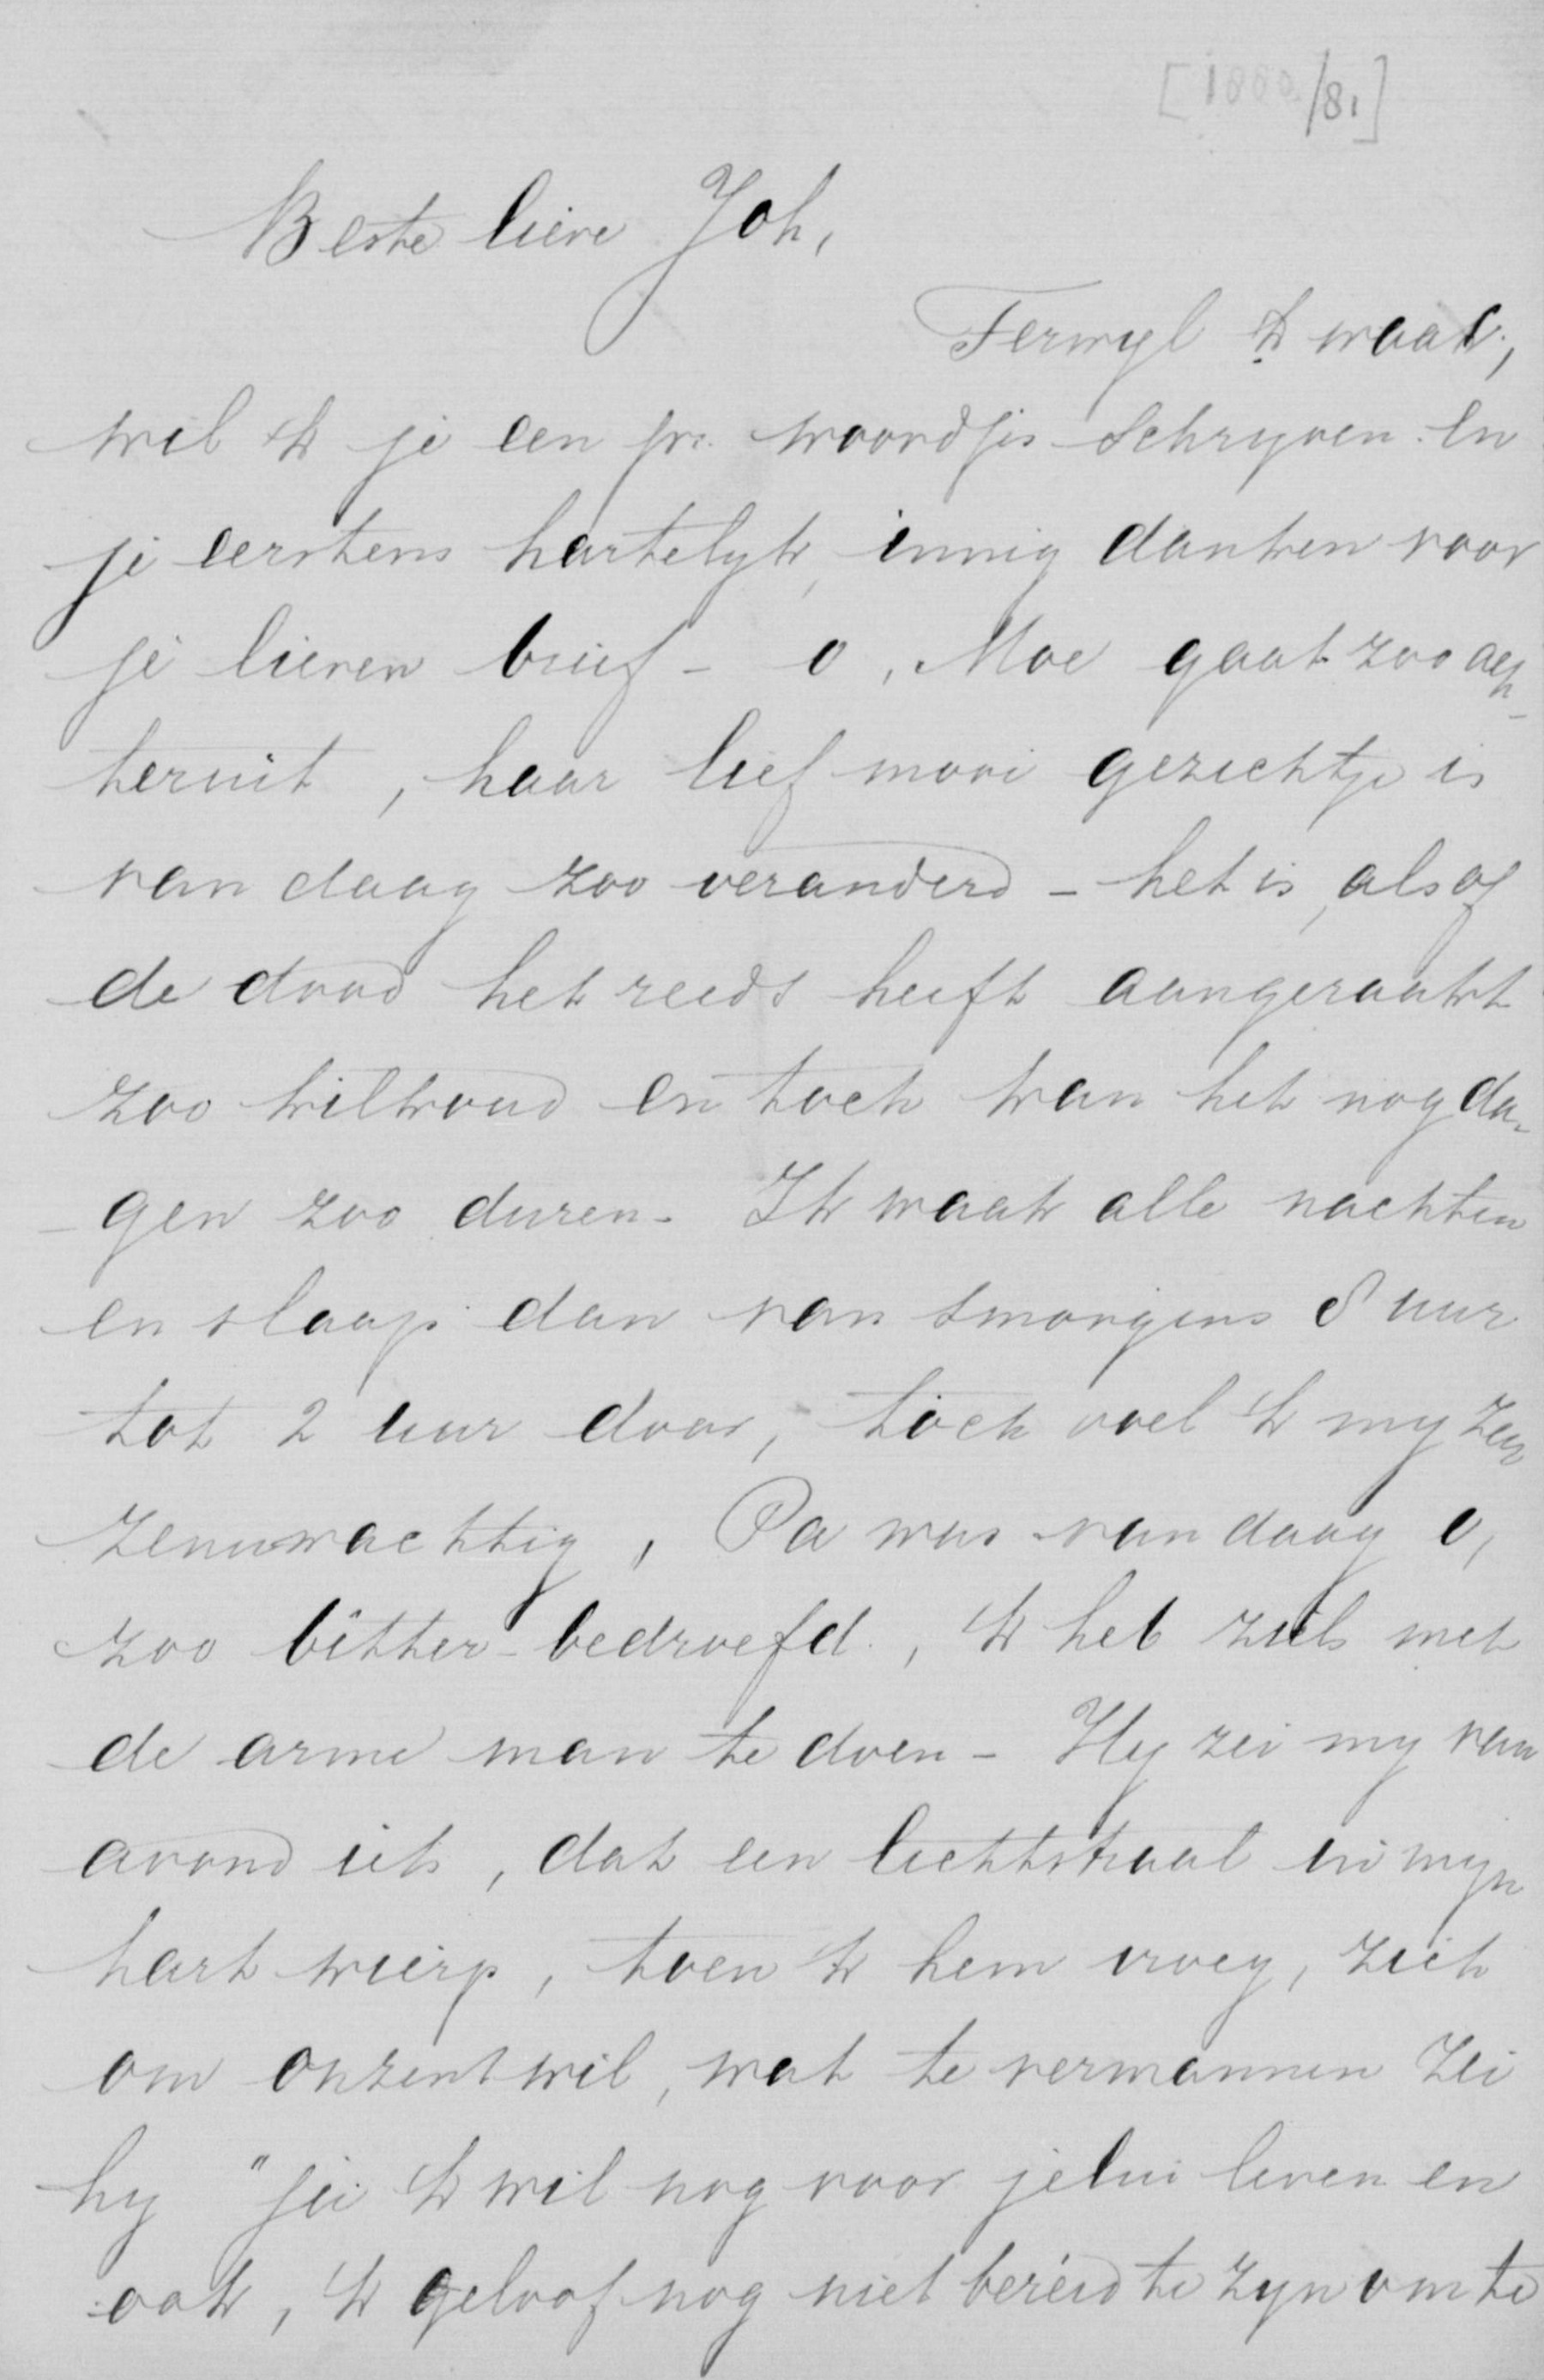 [1880/81]
Beste lieve Joh,
Terwyl ik waak,
wil ik je een pr. woordjes schryven en
je eerstens hartelyk, innig danken voor
je lieven brief – o, Moe gaat zoo ach-
teruit, haar lief mooi gezichtje is
van daag zoo veranderd – het is, alsof
de dood het reeds heeft aangeraakt
zoo kilkoud en toch kan het nog da-
-gen zoo duren – Ik waak alle nachten
en slaap dan van smorgens 8 uur
tot 2 uur door, toch voel ik my zen
zenuwachtig, Pa was van daag o,
zoo bitter-bedroefd, ik heb ziels met
de arme man te doen – Hy zei my van
avond iets, dat een lichtstraal in myn
hart wierp, toen ik hem vroeg, zich
om onzentwil, wat te vermannen zei
hy "ja ik wil nog voor jelui leven en
ook, ik geloof nog niet bereid te zyn om te